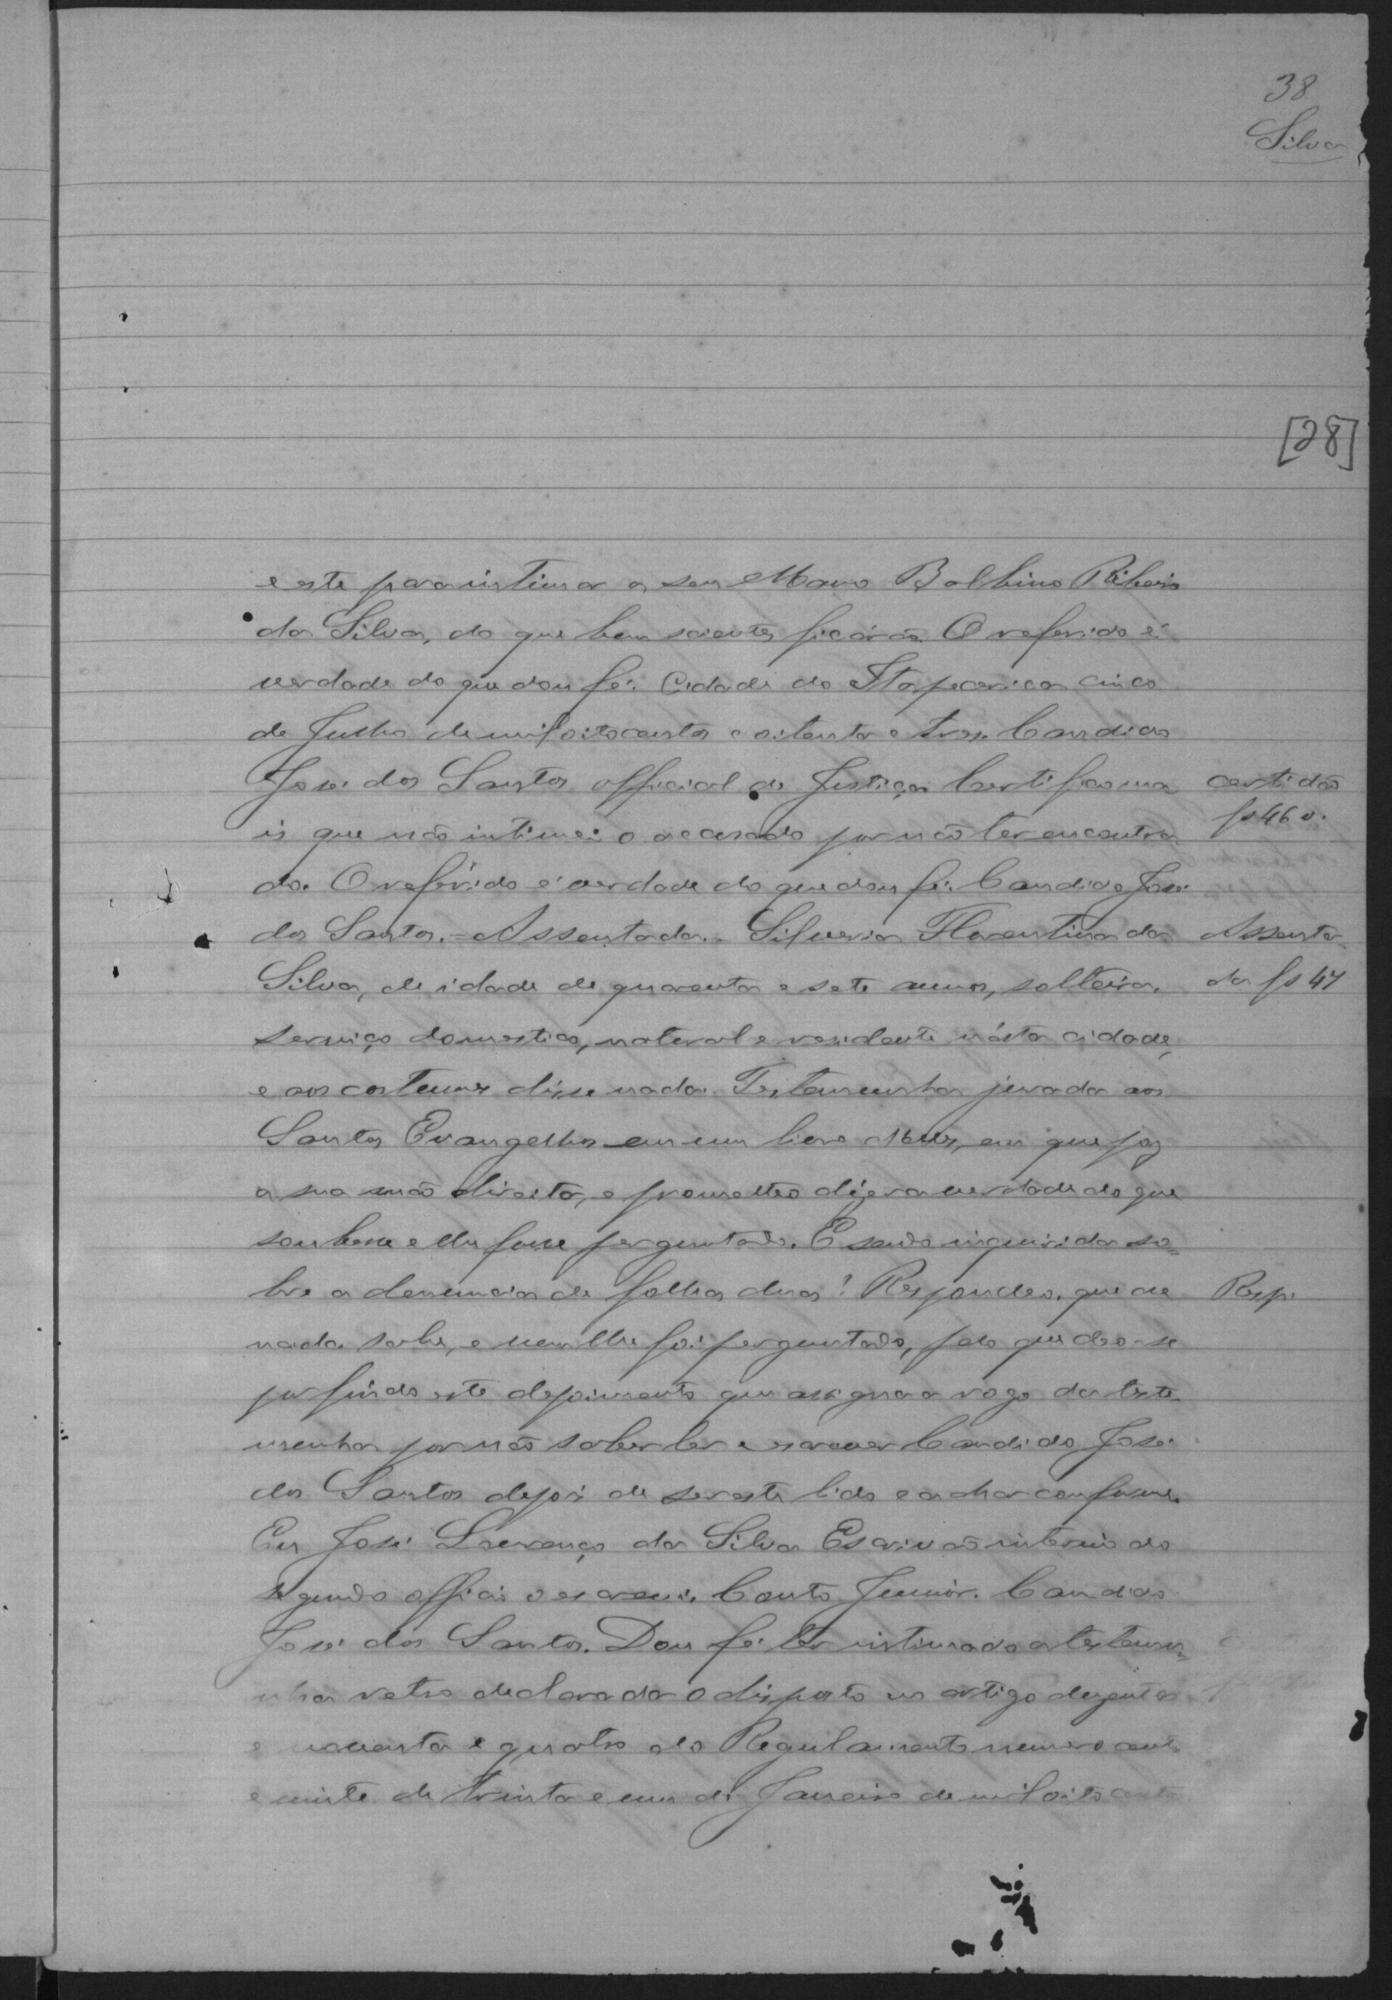 38
Silva
[28]
e este para intimar a seu Mano Balbino Ribeiro
da Silva, do que bem scientes ficárão. O referido é
verdade do que dou fé. Cidade do Itapecerica cinco
de Julho de mil oitocentos e oitenta e tres. Candido
José dos Santos official de Justiça. Certifico ma
certidão
is que não intimei o accusado por não ter encontra
fs 46 v.
do. O referido é verdade do que dou fé. Candido José
dos Santos. = Assentada. - Silveria Florentina da
Assenta-
Silva, de idade de quarenta e sete annos, solteira,
da fs 47
serviço domestico, natural e residente n'ésta cidade,
e aos costumes disse nada. Testemunha jurada aos
Santos Evangelhos em um livro delles, em que poz
a sua mão direita, e prometteo dizer a verdade do que
soubesse e lhe fosse perguntado. E sendo inquirida so=
bre a denuncia de folhas duas! Respondeo, que de
Resp.
nada sabe, e nem lhe foi perguntado, pelo que deo-se
por findo este depoimento que assigna a rogo da teste-
munha por não saber ler e escrever Candido José
dos Santos depois de ser este lido e achar conforme.
Eu José Lourenço da Silva Escrivão interino do
segundo officio o escrevi. Couto Junior. Candido
José dos Santos. Dou fé ter intimado a testemu=
nha retro declarada o disposto no artigo dezentos
e noventa e quatro do Regulamento numero cento
e vinte de trinta e um de Janeiro de mil oitocentos